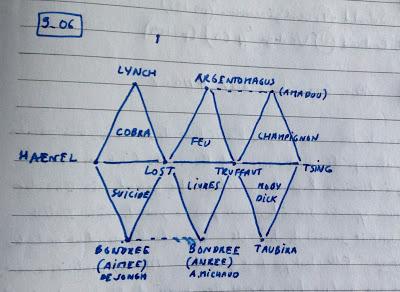 S_06
LYNCH
ARGENTOMAGUS
(AMADOU)
COBRA
FEU
CHAMPIGNON
HAENEL
LOST
TRUFFAUT
TSING
SUICIDE
LIVRES
MOBY
DICK
BONDREE
(AIMEE)
DE JONGH
BONDREE
(ANDREE)
A.MICHAUD
TAUBIRA